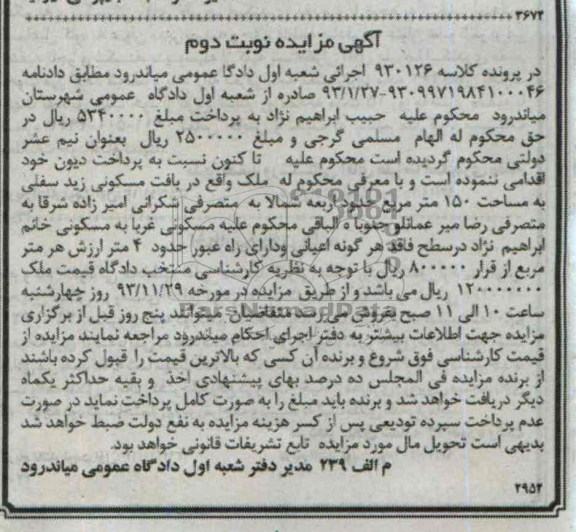 ۳۶۷۲
آگهی مزایده نوبت دوم
در پرونده کلاسه ۹۳۰۱۲۶ اجرائی شعبه اول دادگا عمومی میاندرود مطابق دادنامه
۹۳/۱/۲۷-۹۳۰۹۹۷۱۹۸۴۱۰۰۰۴۶ صادره از شعبه اول دادگاه عمومی شهرستان
میاندرود محکوم علیه حبیب ابراهیم نژاد به پرداخت مبلغ ۵۳۴۰۰۰۰ ریال در
حق محکوم له الهام مسلمی گرجی و مبلغ ۲۵۰۰۰۰۰ ریال بعنوان نیم عشر
دولتی محکوم گردیده است محکوم علیه تا کنون نسبت به پرداخت دیون خود
اقدامی ننموده است و با معرفی محکوم له ملک واقع در بافت مسکونی زید سفلی
به مساحت ۱۵۰ متر مربع حدود اربعه شمالا به متصرفی شکرانی امیر زاده شرقا به
متصرفی رضا میر عمانلو جنوبا ه الباقی محکوم علیه مسکونی غربا به مسکونی خانم
ابراهیم نژاد درسطح فاقد هر گونه اعیانی ودارای راه عبور حدود ۴ متر ارزش هر متر
مربع از قرار ۸۰۰۰۰۰ ریال با توجه به نظریه کارشناسی منتخب دادگاه قیمت ملک
۱۲۰۰۰۰۰۰۰ ریال می باشد و از طریق مزایده در مورخه ۹۳/۱۱/۲۹ روز چهارشنبه
ساعت ۱۰ الی ۱۱ صبح بفروش می رسد متقاضیان میتوانند پنج روز قبل از برگزاری
مزایده جهت اطلاعات بیشتر به دفتر اجرای احکام میاندرود مراجعه نمایند مزایده از
قیمت کارشناسی فوق شروع و برنده آن کسی که بالاترین قیمت را قبول کرده باشند
از برنده مزایده فی المجلس ده درصد بهای پیشنهادی اخذ و بقیه حداکثر یکماه
دیگر دریافت خواهد شد و برنده باید مبلغ را به صورت کامل پرداخت نماید در صورت
عدم پرداخت سپرده تودیعی پس از کسر هزینه مزایده به نفع دولت ضبط خواهد شد
بدیهی است تحویل مال مورد مزایده تابع تشریفات قانونی خواهد بود.
م الف ۲۳۹ مدیر دفتر شعبه اول دادگاه عمومی میاندرود
۲۹۵۲